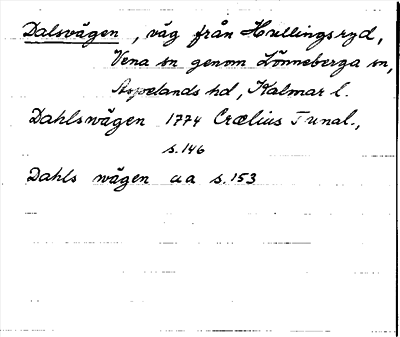 Dalsvägen, väg från Hvellingsryd,
Vena sn genom Lönneberga sn,
Aspelands hd, Kalmar l.
Dahlswägen 1774 Crælius Tunal.,
s. 146
Dahls wägen aa s. 153